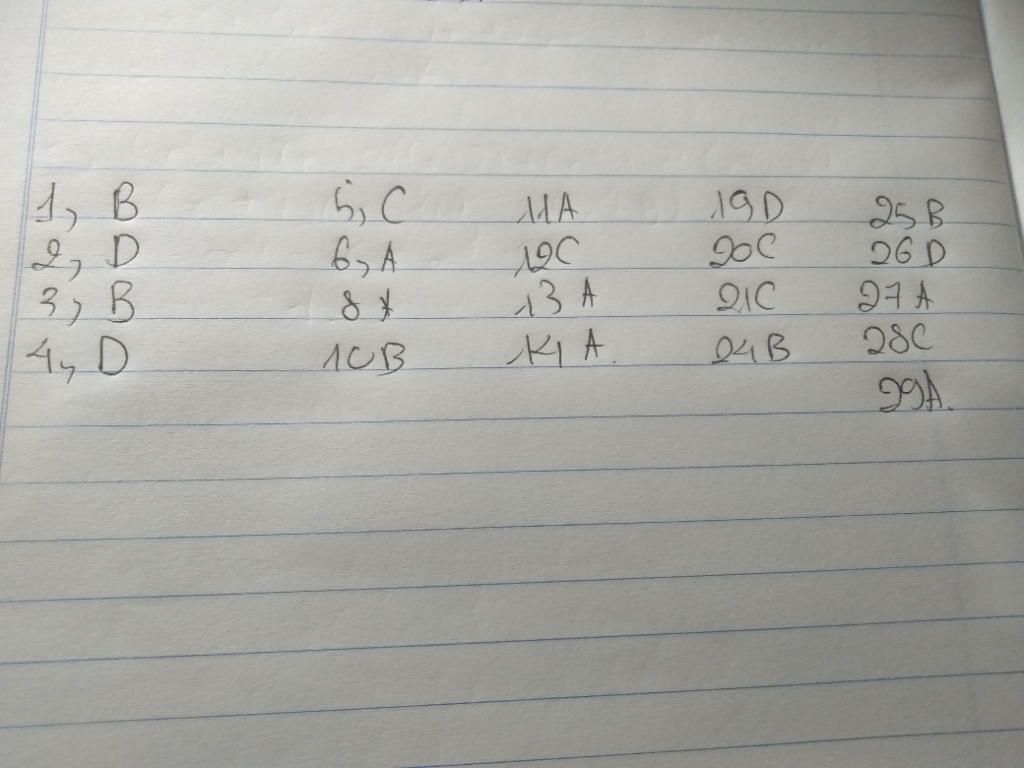 1, B 5, C 11A 19D 25B
2, D 6, A 12C 20C 26D
3, B 8 13 A 21C 27A
4, D 10B 14 A. 24B 28C
29A.